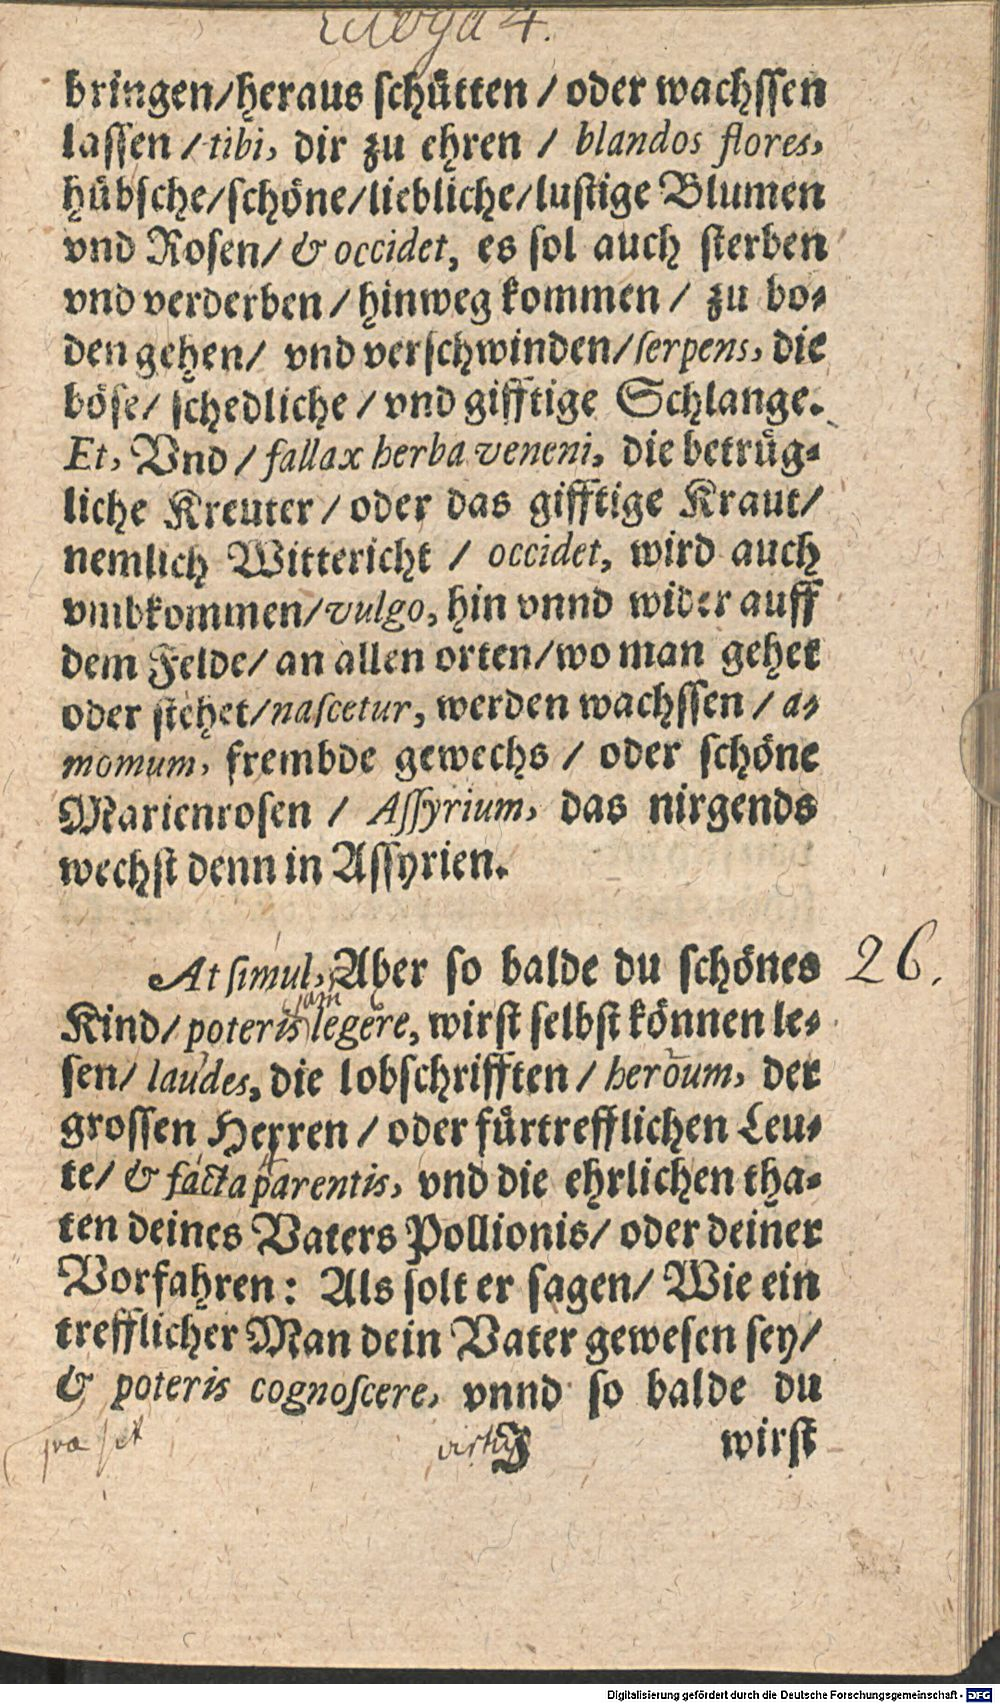 Ecloga 4.
bringen/heraus schütten / oder wachssen
lassen / tibi, dir zu ehren / blandos flores,
hübsche/schöne/liebliche/lustige Blumen
vnd Rosen/ & occidet, es sol auch sterben
vnd verderben / hinweg kommen / zu bo-
den gehen/ vnd verschwinden/ serpens, die
böse/ schedliche / vnd gifftige Schlange.
Et, Vnd / fallax herba veneni, die betrüg-
liche Kreuter / oder das gifftige Kraut/
nemlich Wittericht / occidet, wird auch
vmbkommen/ vulgo, hin vnnd wider auff
dem Felde/ an allen orten/wo man gehet
oder stehet/ nascetur, werden wachssen / a-
momum, frembde gewechs / oder schöne
Marienrosen / Assyrium, das nirgends
wechst denn in Assyrien.
At simul, Aber so balde du schönes 26.
jam
Kind/ poteris legere, wirst selbst können le-
sen/ laudes, die lobschrifften / heroum, der
grossen Herren / oder fürtrefflichen Leu-
te/ & facta parentis, vnd die ehrlichen tha-
ten deines Vaters Pollionis/ oder deiner
Vorfahren: Als solt er sagen/ Wie ein
trefflicher Man dein Vater gewesen sey/
& poteris cognoscere, vnnd so balde du
J wirst
Digitalisierung gefördert durch die Deutsche Forschungsgemeinschaft - DFG